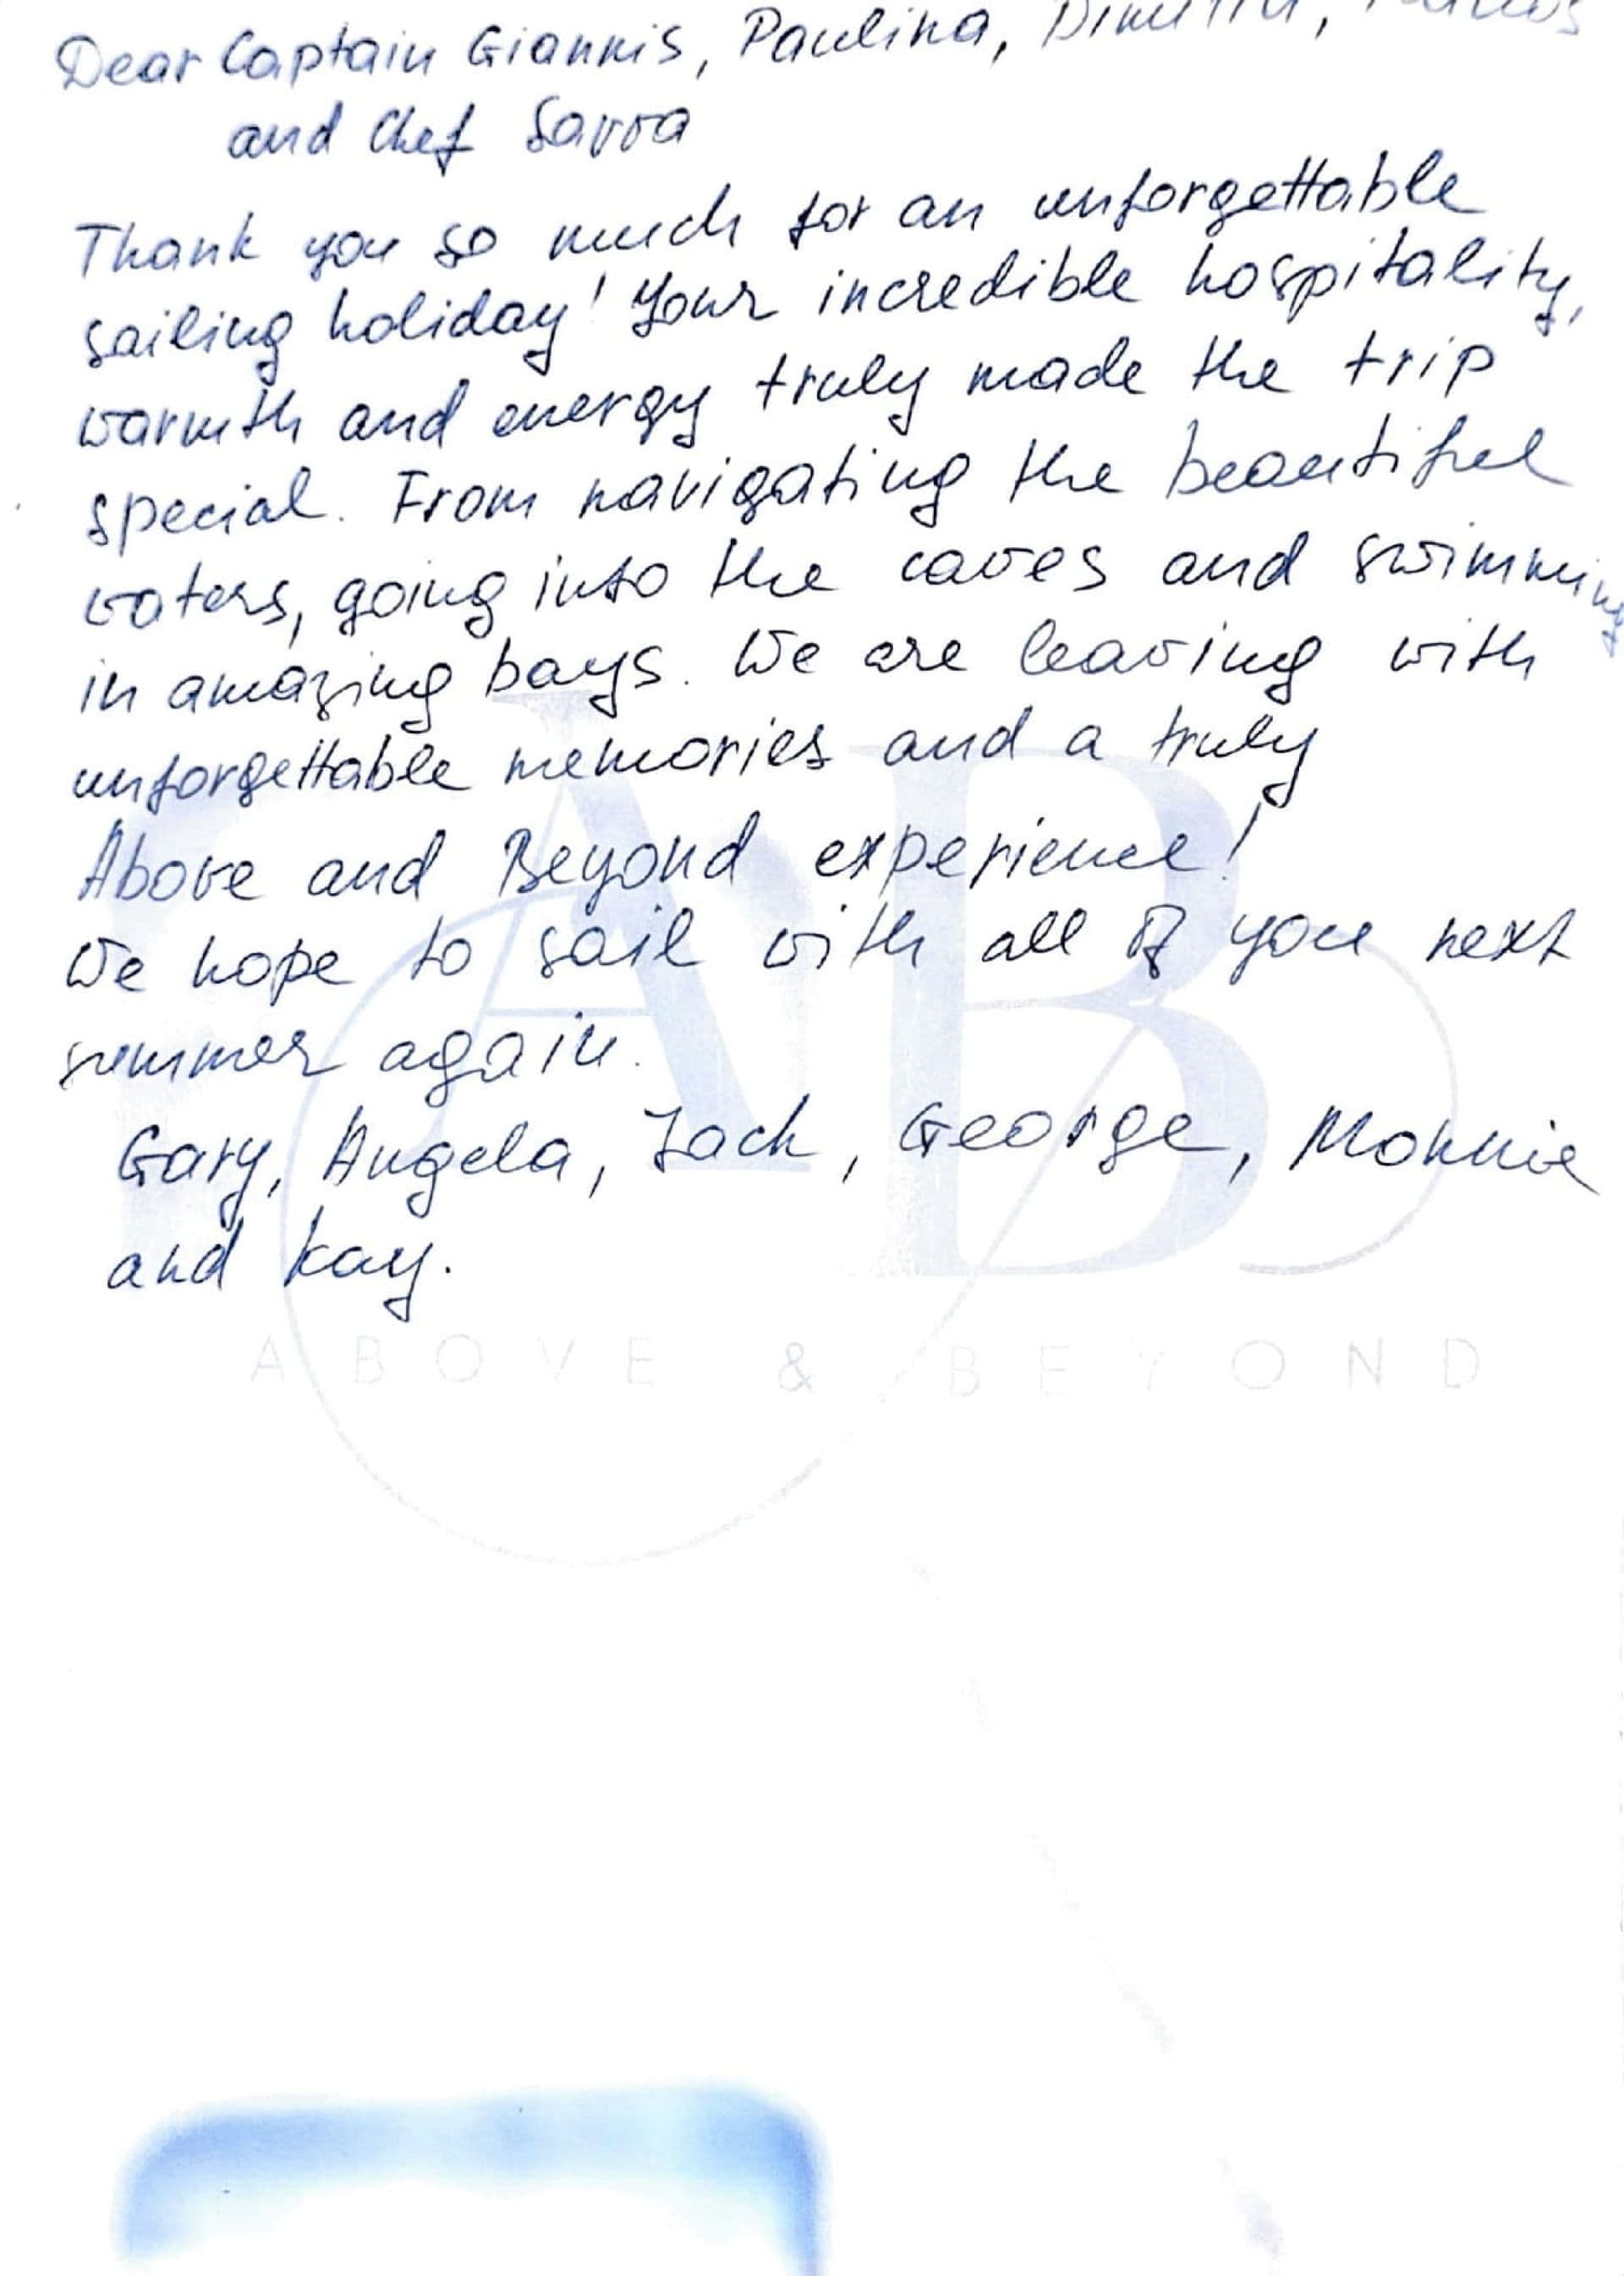 Dear Captain Giannis, Paulina, Dimitri,
and Chef Savva
Thank you so much for an unforgettable
sailing holiday! Your incredible hospitality,
warmth and energy truly made the trip
special. From navigating the beautiful
waters, going into the caves and swimming
in amazing bays. We are leaving with
unforgettable memories and a truly
Above and Beyond experience!
We hope to sail with all of you next
summer again.
Gary, Angela, Jack, George, Monnie
and Kay.
AB
ABOVE & BEYOND